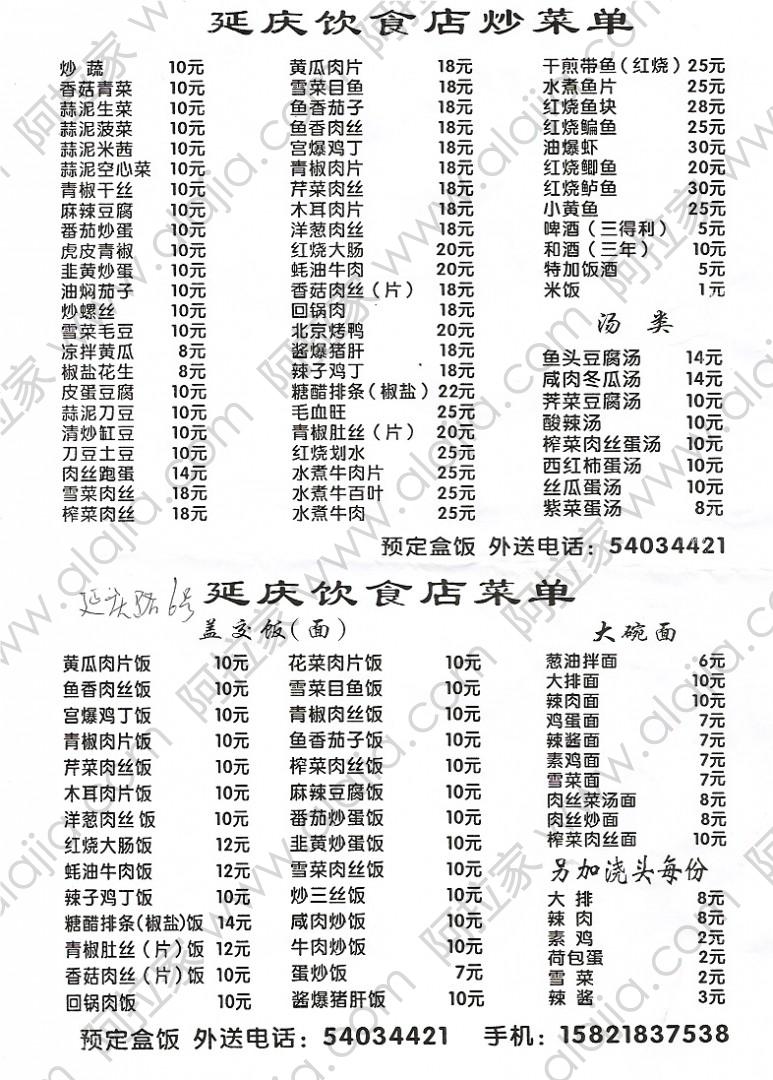 延庆饮食店炒菜单
炒 蔬 10元
香菇青菜 10元
蒜泥生菜 10元
蒜泥菠菜 10元
蒜泥米茜 10元
蒜泥空心菜 10元
青椒干丝 10元
麻辣豆腐 10元
番茄炒蛋 10元
虎皮青椒 10元
韭黄炒蛋 10元
油焖茄子 10元
炒螺丝 10元
雪菜毛豆 10元
凉拌黄瓜 8元
椒盐花生 8元
皮蛋豆腐 10元
蒜泥刀豆 10元
清炒缸豆 10元
刀豆土豆 10元
肉丝跑蛋 14元
雪菜肉丝 18元
榨菜肉丝 18元
黄瓜肉片 18元
雪菜目鱼 18元
鱼香茄子 18元
鱼香肉丝 18元
宫爆鸡丁 18元
青椒肉片 18元
芹菜肉丝 18元
木耳肉片 18元
洋葱肉丝 18元
红烧大肠 20元
蚝油牛肉 20元
香菇肉丝（片） 18元
回锅肉 18元
北京烤鸭 20元
酱爆猪肝 18元
辣子鸡丁 18元
糖醋排条（椒盐） 22元
毛血旺 25元
青椒肚丝（片） 20元
红烧划水 25元
水煮牛肉片 25元
水煮牛百叶 25元
水煮牛肉 25元
干煎带鱼（红烧） 25元
水煮鱼片 25元
红烧鱼块 28元
红烧鳊鱼 25元
油爆虾 30元
红烧鲫鱼 20元
红烧鲈鱼 30元
小黄鱼 25元
啤酒（三得利） 5元
和酒（三年） 10元
特加饭酒 5元
米饭 1元
汤 类
鱼头豆腐汤 14元
咸肉冬瓜汤 14元
荠菜豆腐汤 10元
酸辣汤 10元
榨菜肉丝蛋汤 10元
西红柿蛋汤 10元
丝瓜蛋汤 10元
紫菜蛋汤 8元
预定盒饭 外送电话：54034421
延庆路6号
延庆饮食店菜单
盖交饭（面）
黄瓜肉片饭 10元
鱼香肉丝饭 10元
宫爆鸡丁饭 10元
青椒肉片饭 10元
芹菜肉丝饭 10元
木耳肉片饭 10元
洋葱肉丝饭 10元
红烧大肠饭 12元
蚝油牛肉饭 12元
辣子鸡丁饭 10元
糖醋排条(椒盐)饭 14元
青椒肚丝（片）饭 12元
香菇肉丝（片）饭 10元
回锅肉饭 10元
花菜肉片饭 10元
雪菜目鱼饭 10元
青椒肉丝饭 10元
鱼香茄子饭 10元
榨菜肉丝饭 10元
麻辣豆腐饭 10元
番茄炒蛋饭 10元
韭黄炒蛋饭 10元
雪菜肉丝饭 10元
炒三丝饭 10元
咸肉炒饭 10元
牛肉炒饭 10元
蛋炒饭 7元
酱爆猪肝饭 10元
大碗面
葱油拌面 6元
大排面 10元
辣肉面 10元
鸡蛋面 7元
辣酱面 7元
素鸡面 7元
雪菜面 7元
肉丝菜汤面 8元
肉丝炒面 8元
榨菜肉丝面 10元
另加浇头每份
大 排 8元
辣 肉 8元
素 鸡 2元
荷包蛋 2元
雪 菜 2元
辣 酱 3元
预定盒饭 外送电话：54034421 手机：15821837538
阿拉家 www.alajia.com